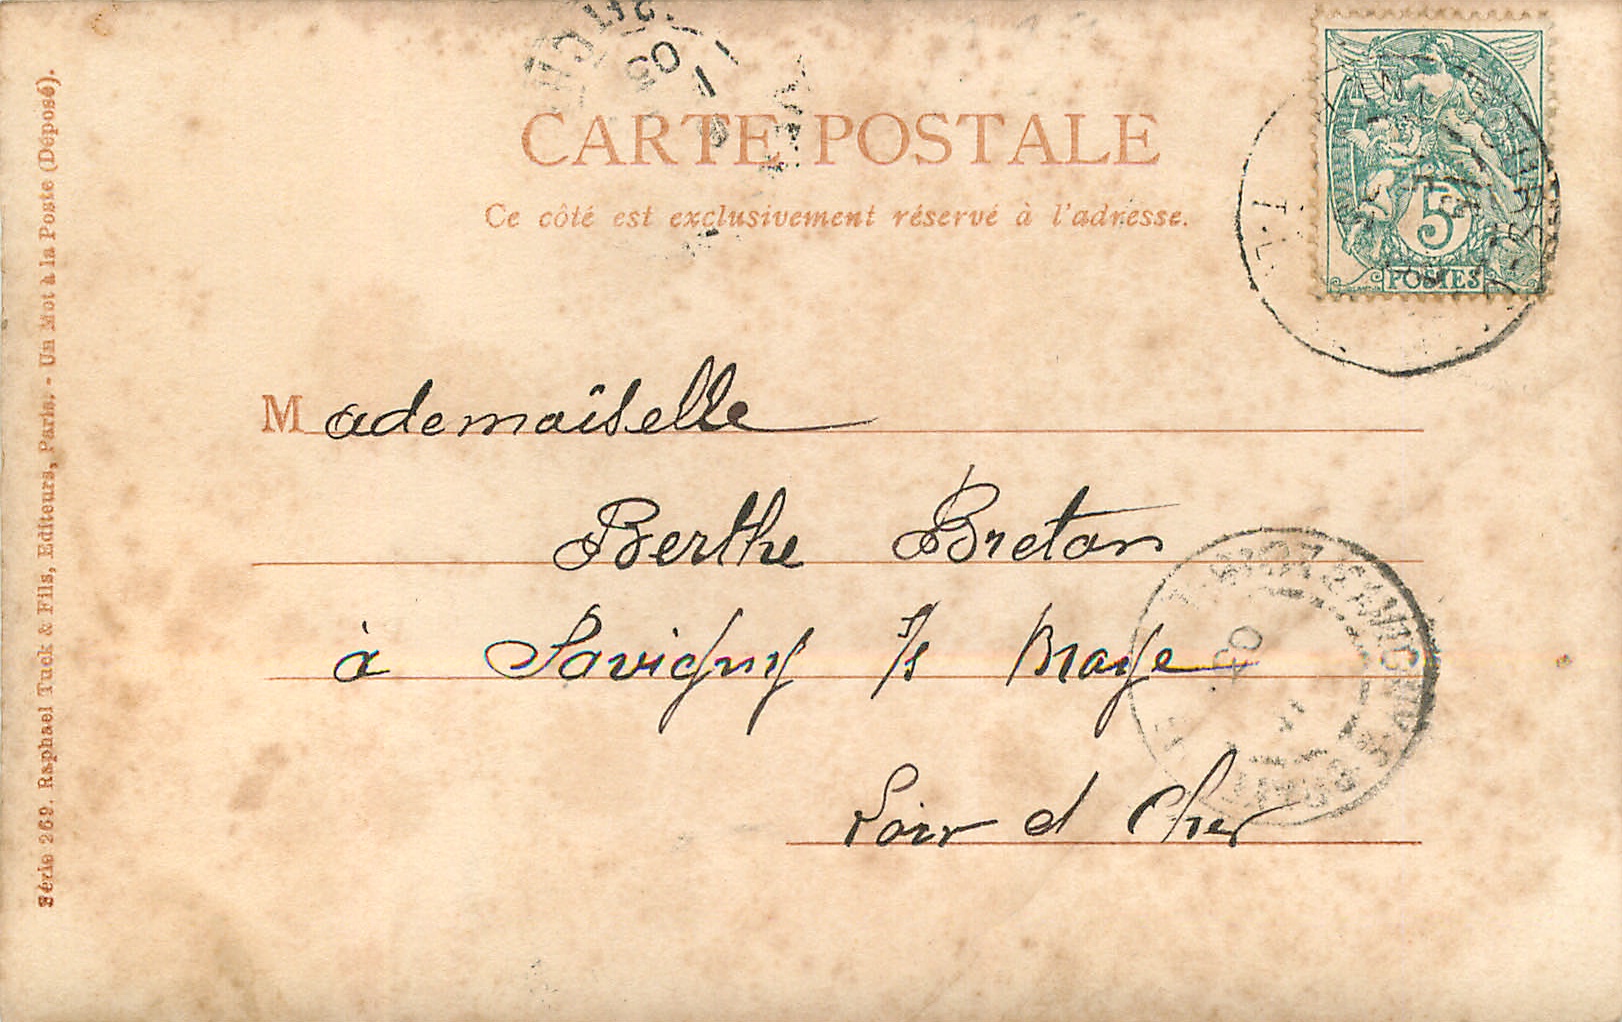 CARTE POSTALE
Ce côté est exclusivement réservé à l'adresse.
5
POSTES
Mademoiselle
Berthe Breton
à Savigny s/s Braye
Loir et Cher
Série 269. Raphael Tuck & Fils, Editeurs, Paris. - Un Mot à la Poste (Déposé).
05